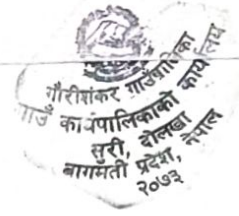 गौरीशंकर गाउँपालिका
गाउँ कार्यपालिकाको कार्यालय
सुरी, दोलखा
बागमती प्रदेश, नेपाल
२०७३